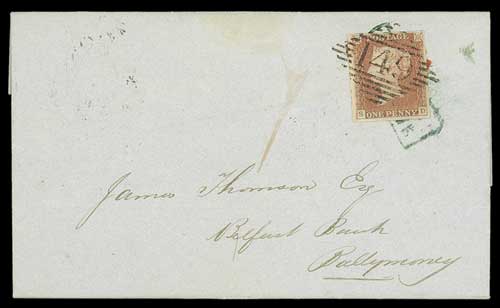 POSTAGE
149
ONE PENNY
James Thomson Esq
Belfast Bank
Ballymoney